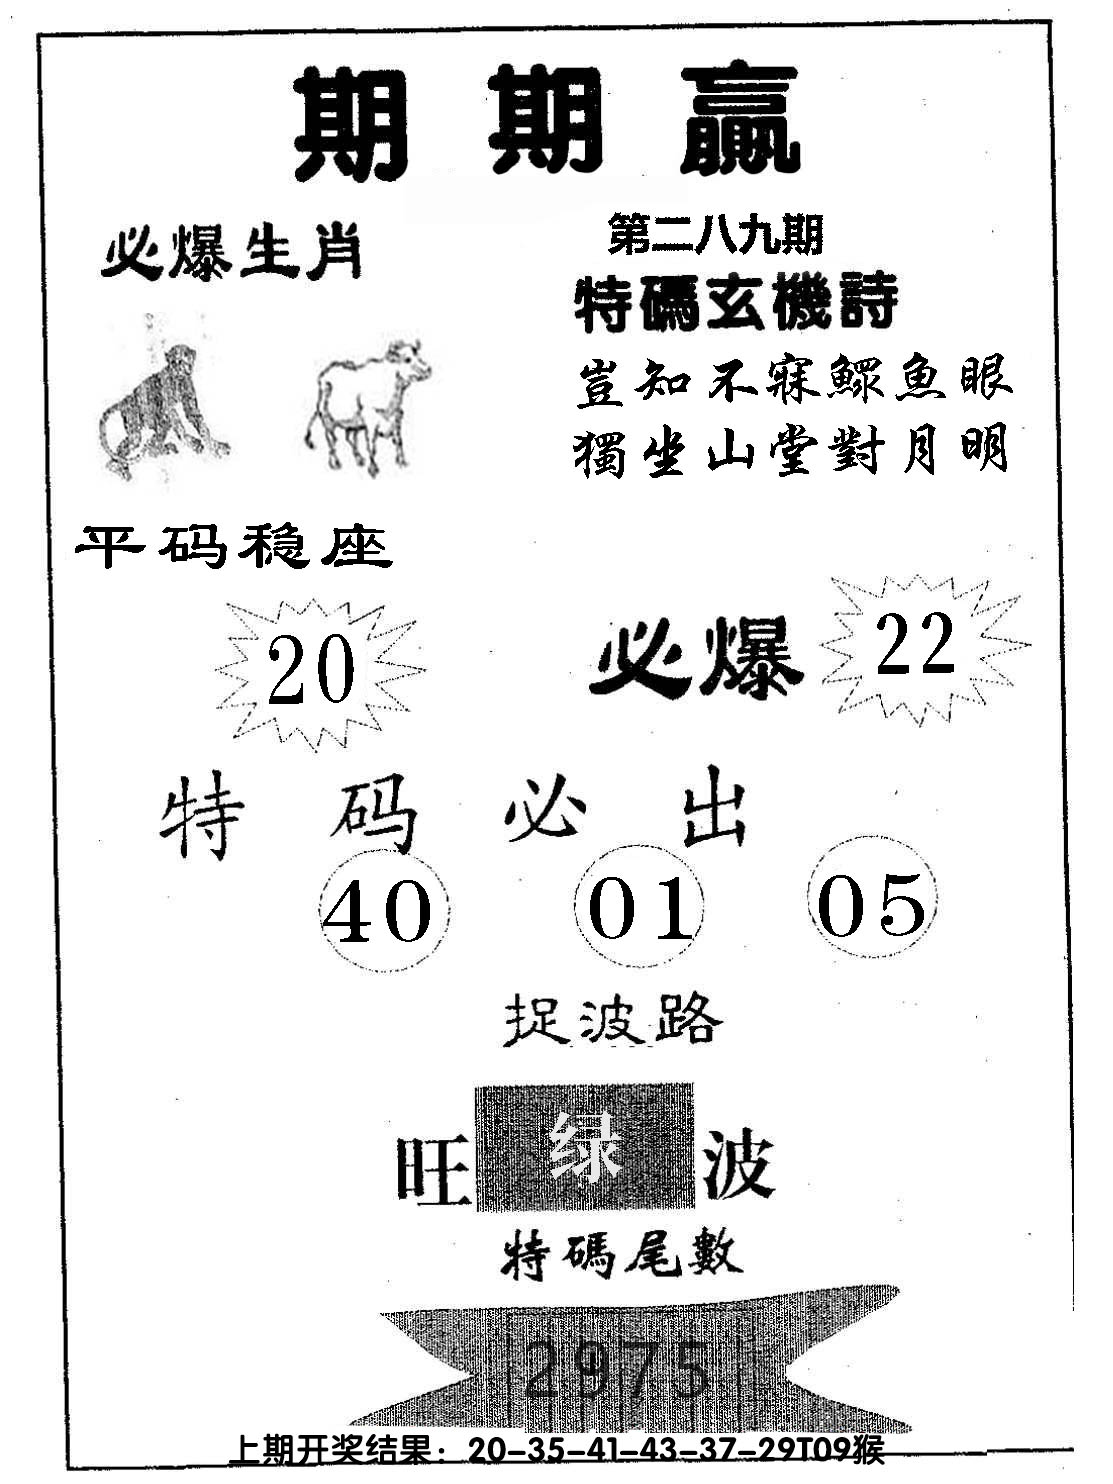 期期贏
必爆生肖
第二八九期
特碼玄機詩
豈知不寐鰥魚眼
獨坐山堂對月明
平码稳座
20
必爆 22
特码必出
40 01 05
捉波路
旺 绿 波
特碼尾數
2975
上期开奖结果：20-35-41-43-37-29T09猴